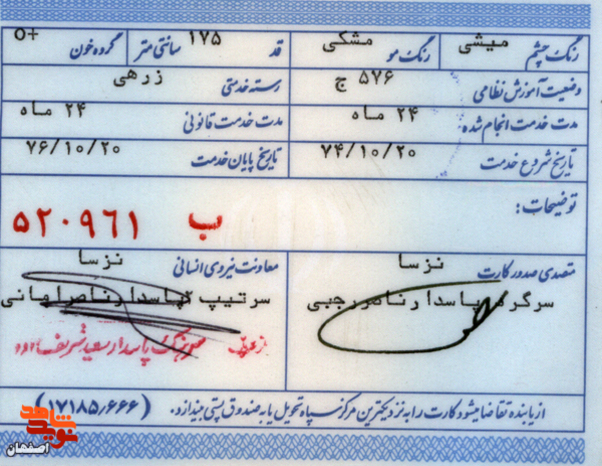 رنگ چشم میشی رنگ مو مشکی قد ۱۷۵ سانتی متر گروه خون O+
وضعیت آموزش نظامی ۵۷۶ ج رسته خدمتی زرهی
مدت خدمت انجام شده: ۲۴ ماه مدت خدمت قانونی ۲۴ ماه
تاریخ شروع خدمت ۷۴/۱۰/۲۰ تاریخ پایان خدمت ۷۶/۱۰/۲۰
توضیحات:
ب ۵۲۰۹۶۱
متصدی صدور کارت نزسا
سرگرد پاسدار ناصر رجبی
معاونت نیروی انسانی نزسا
سرتیپ پاسدار ناصر
سرهنگ پاسدار سعید شریف
از یابنده تقاضا میشود کارت را به نزدیکترین مرکز سپاه تحویل یا به صندوق پستی بیندازد. (۱۷۱۸۵٫۶۶۶)
نوید شاهد
اصفهان